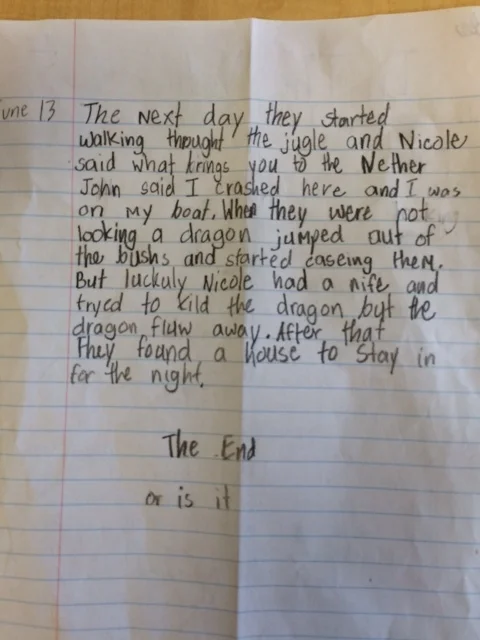 June 13 The Next day they started
walking thought the jugle and Nicole
said what krings you to the Nether
John said I crashed here and I was
on my boat. When they were not
looking a dragon jumped out of
the bushs and started caseing them.
But luckuly Nicole had a nife and
tryed to kild the dragon but the
dragon fluw away. After that
they found a house to stay in
for the night.
The End
or is it